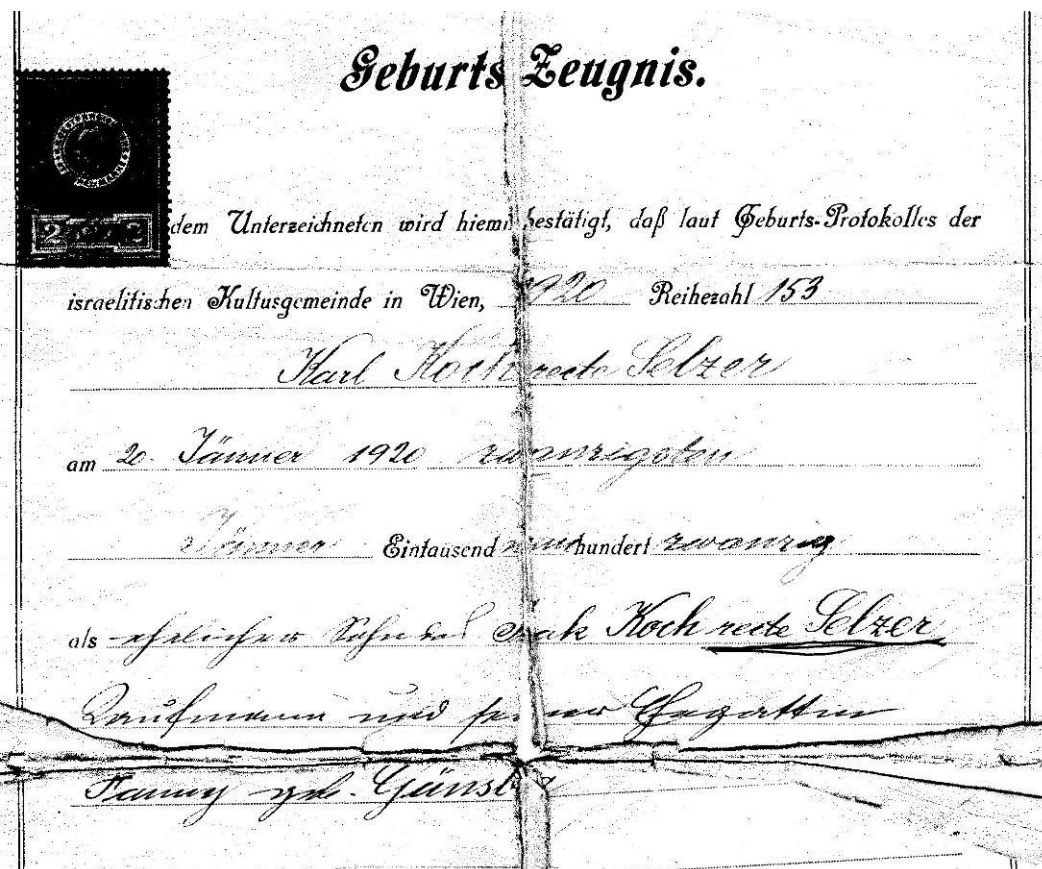 Geburts Zeugnis.
dem Unterzeichneten wird hiemit bestätigt, daß laut Geburts-Protokolles der
israelitischen Kultusgemeinde in Wien, 1920 Reihezahl 153
Karl Koch recte Selzer
am 20. Jänner 1920 zwanzigsten
Jänner Eintausend neunhundert zwanzig
als ehelicher Sohn des Isak Koch recte Selzer
Kaufmann und seiner Ehegattin
Fanny geb.